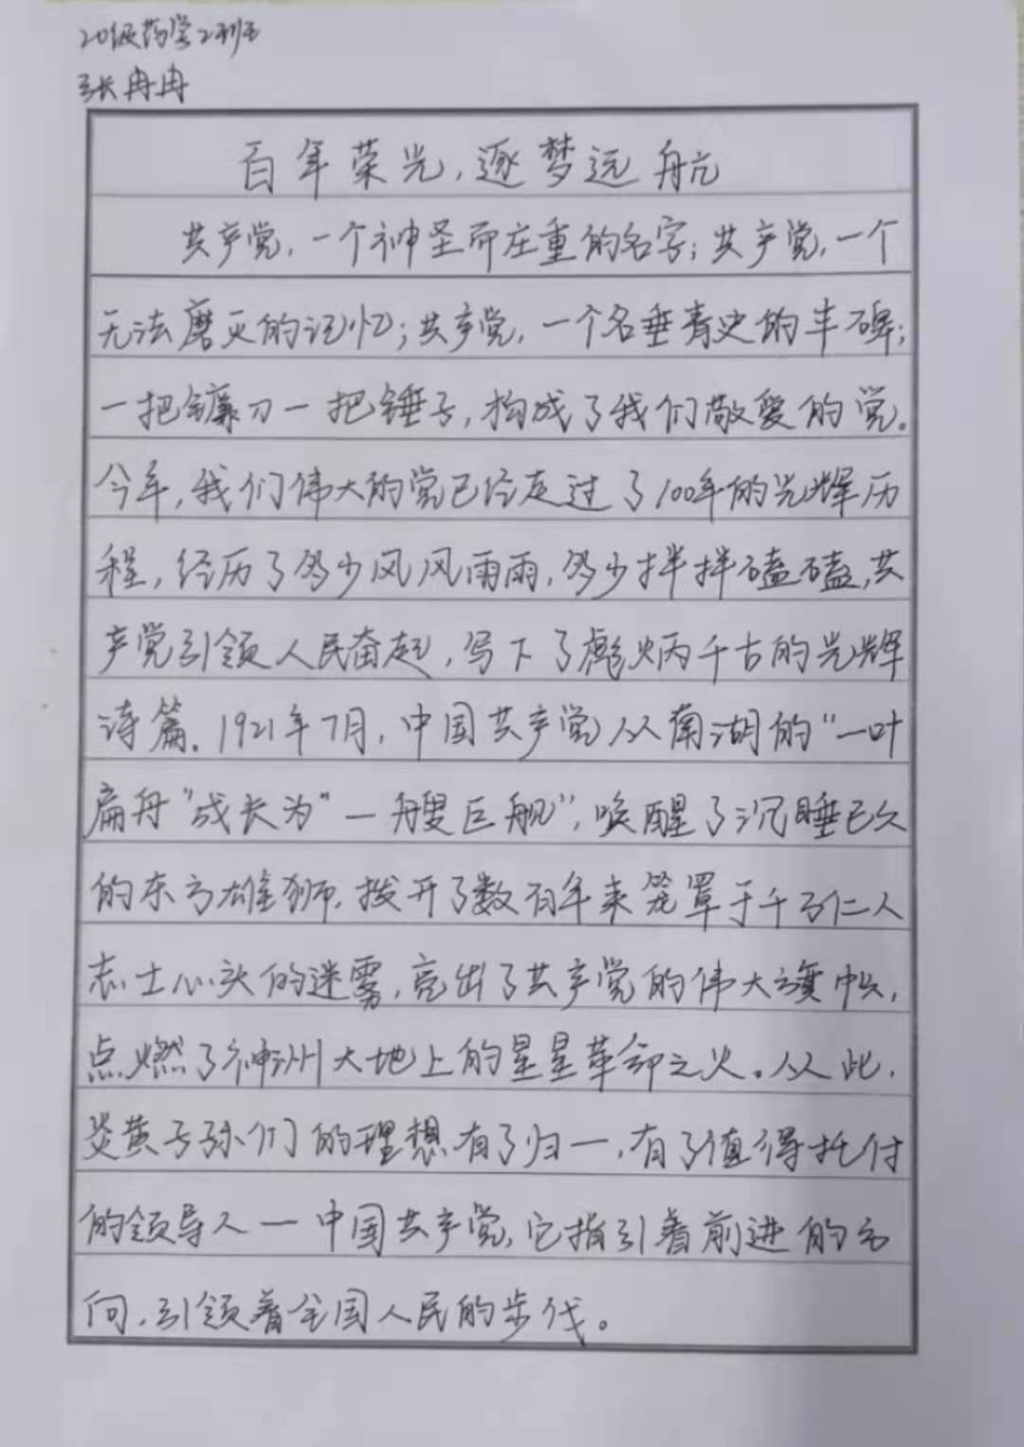 20级药学2班
张冉冉
百年荣光,逐梦远航
共产党,一个神圣而庄重的名字;共产党,一个
无法磨灭的记忆;共产党,一个名垂青史的丰碑;
一把镰刀一把锤子,构成了我们敬爱的党。
今年,我们伟大的党已经走过了100年的光辉历
程,经历了多少风风雨雨,多少拌拌磕磕,共
产党引领人民奋起,写下了彪炳千古的光辉
诗篇.1921年7月,中国共产党从南湖的“一叶
扁舟”成长为“一艘巨舰”,唤醒了沉睡已久
的东方雄狮.拨开了数百年来笼罩于千万仁人
志士心头的迷雾,亮出了共产党的伟大旗帜,
点燃了神州大地上的星星革命之火。从此,
炎黄子孙们的理想有了归一,有了值得托付
的领导人一中国共产党,它指引着前进的方
向,引领着全国人民的步伐。